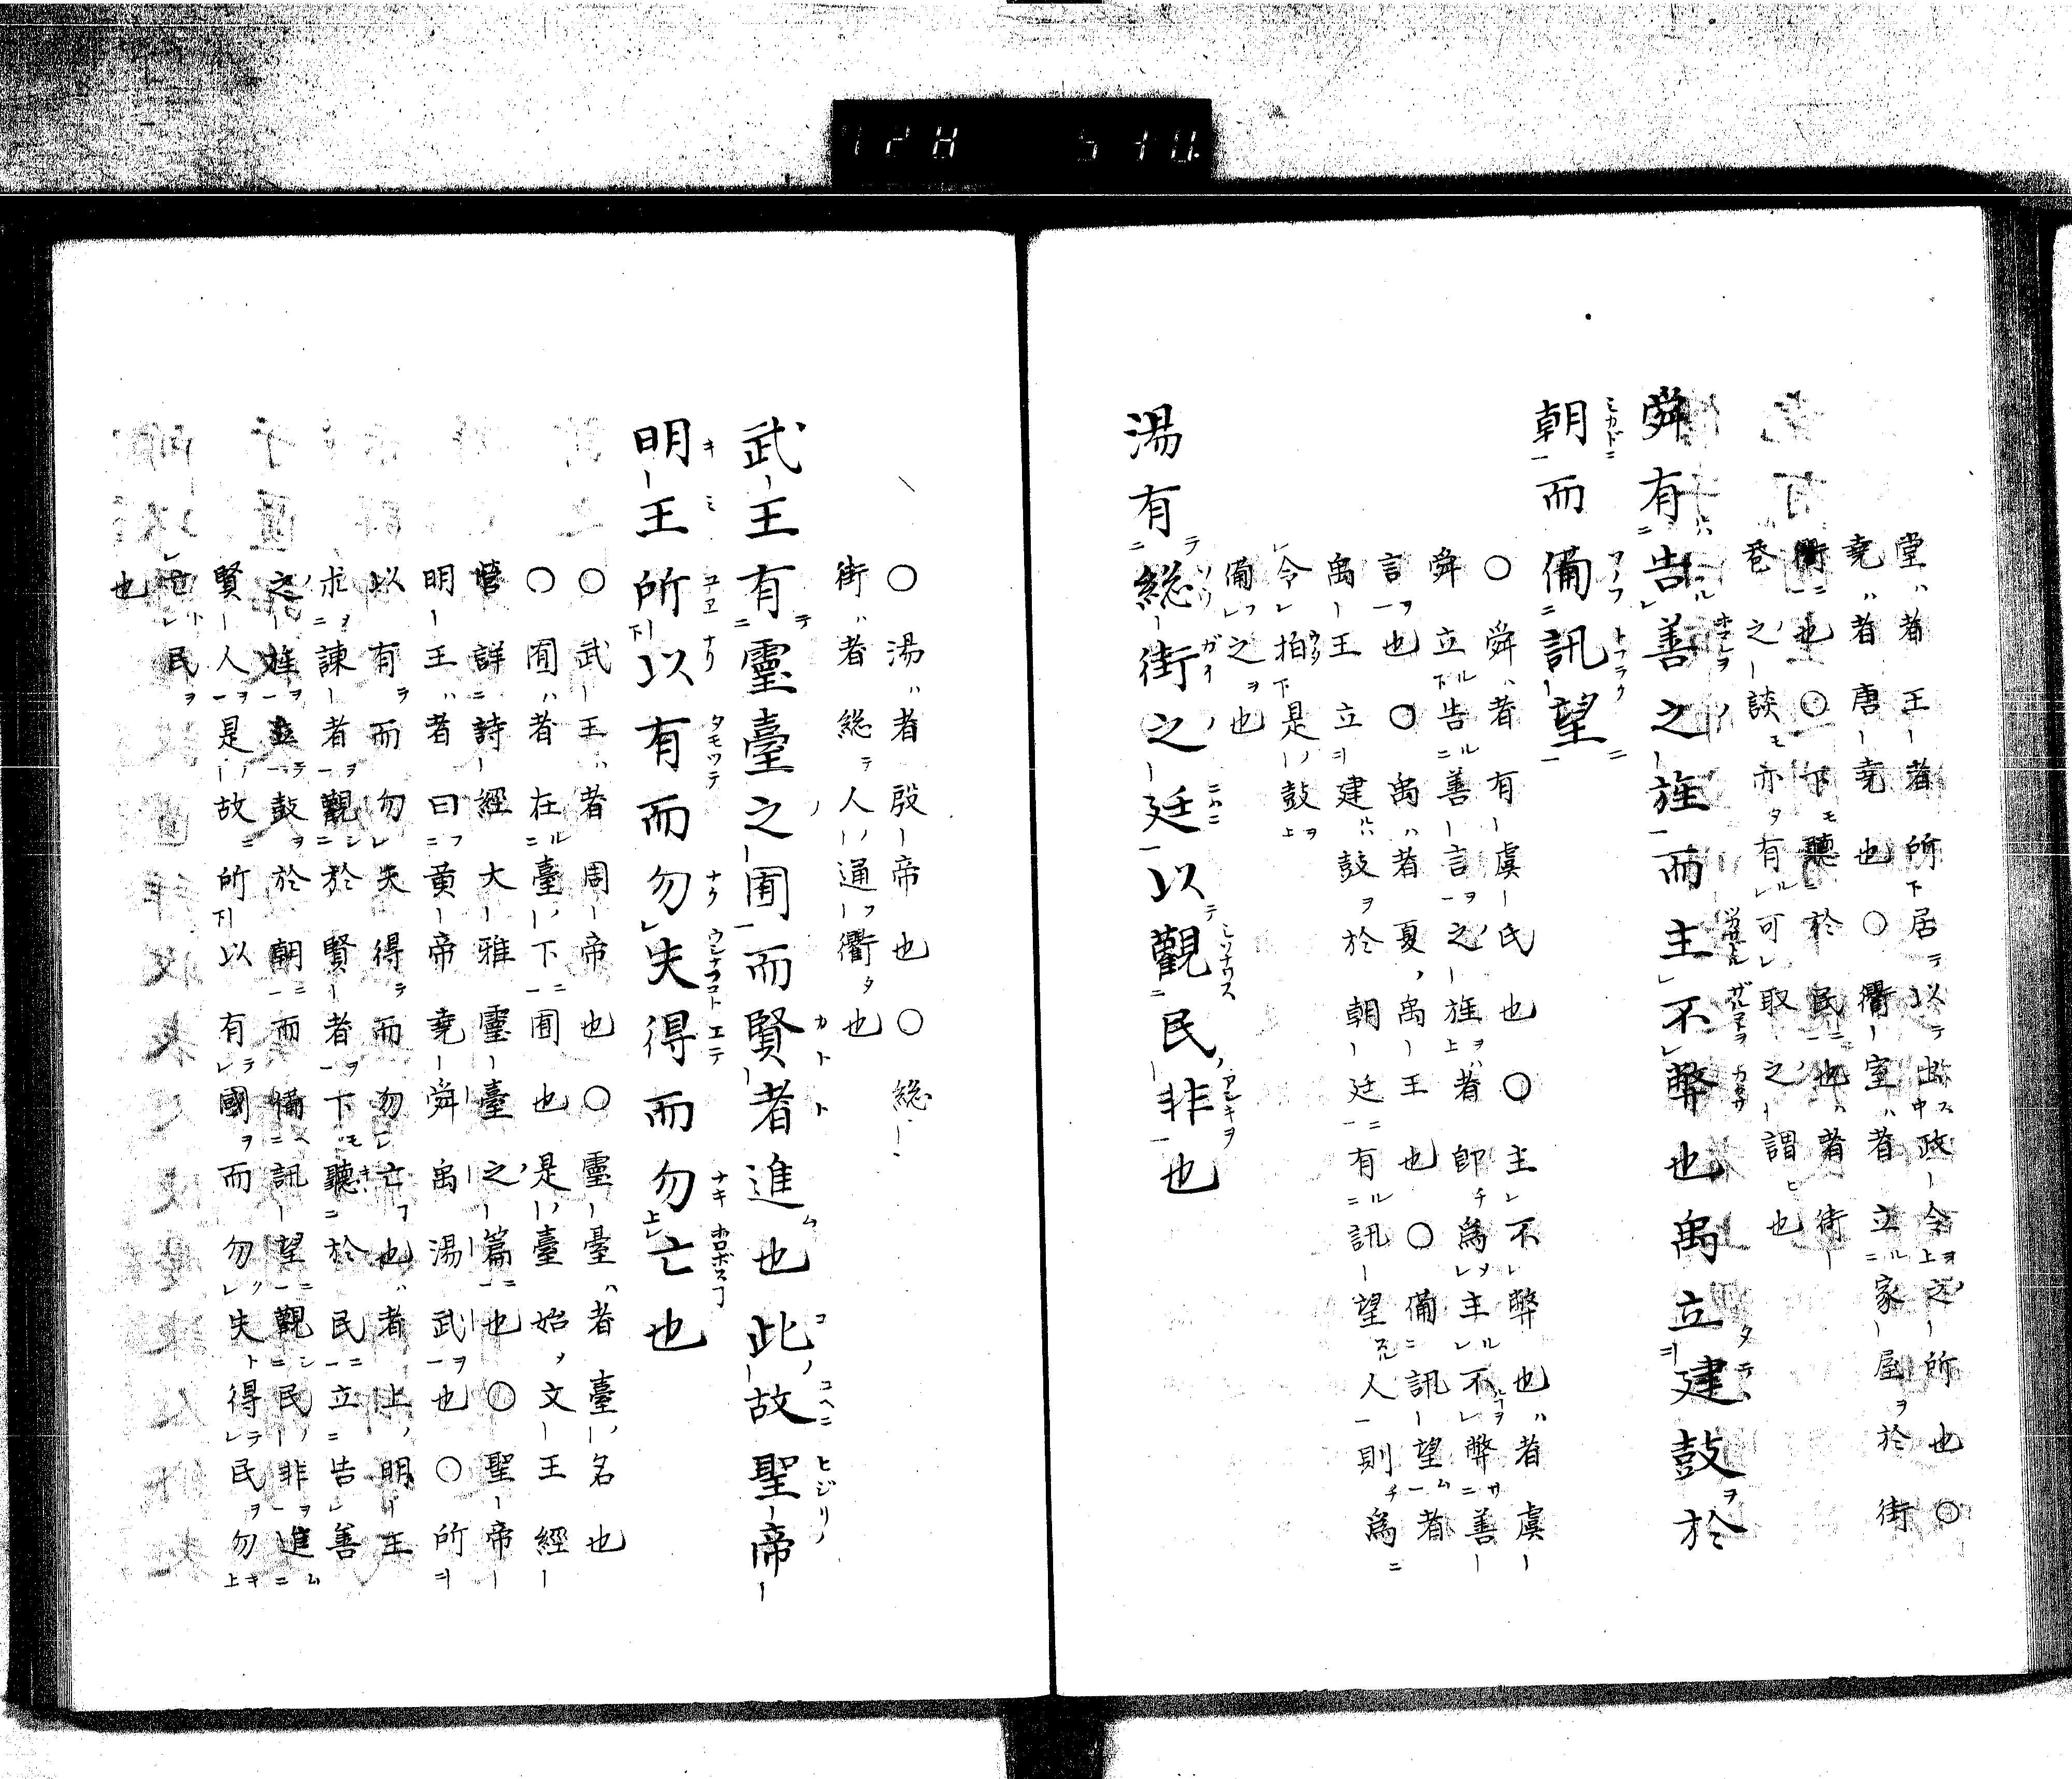 堂者王者所居以出政令之所也○
堯者唐堯也○衢室者立家屋於街
衢也○下聽於民也者街
巷之談亦有可取之謂也
舜有告善之旌而主不弊也禹立建鼓於
朝而備訊望
○舜者有虞氏也○主不弊也者虞
舜立告善言之旌者即爲主不弊善
言也○禹者夏禹王也○備訊望者
禹王立建鼓於朝廷有訊望人則爲
令拍是鼓
備之也
湯有総街之廷以觀民非也
○湯者殷帝也○総
街者総人通衢也
武王有靈臺之囿而賢者進也此故聖帝
明王所以有而勿失得而勿亡也
○武王者周帝也○靈臺者臺名也
○囿者在臺下囿也是臺始文王經
營詳詩經大雅靈臺之篇也○聖帝
明王者曰黃帝堯舜禹湯武也○所
以有而勿失得而勿亡也者上明主
求諫者觀於賢者下聽於民立告善
之旌立鼓於朝而備訊望觀民非進
賢人是故所以有國而勿失得民勿
亡民
也